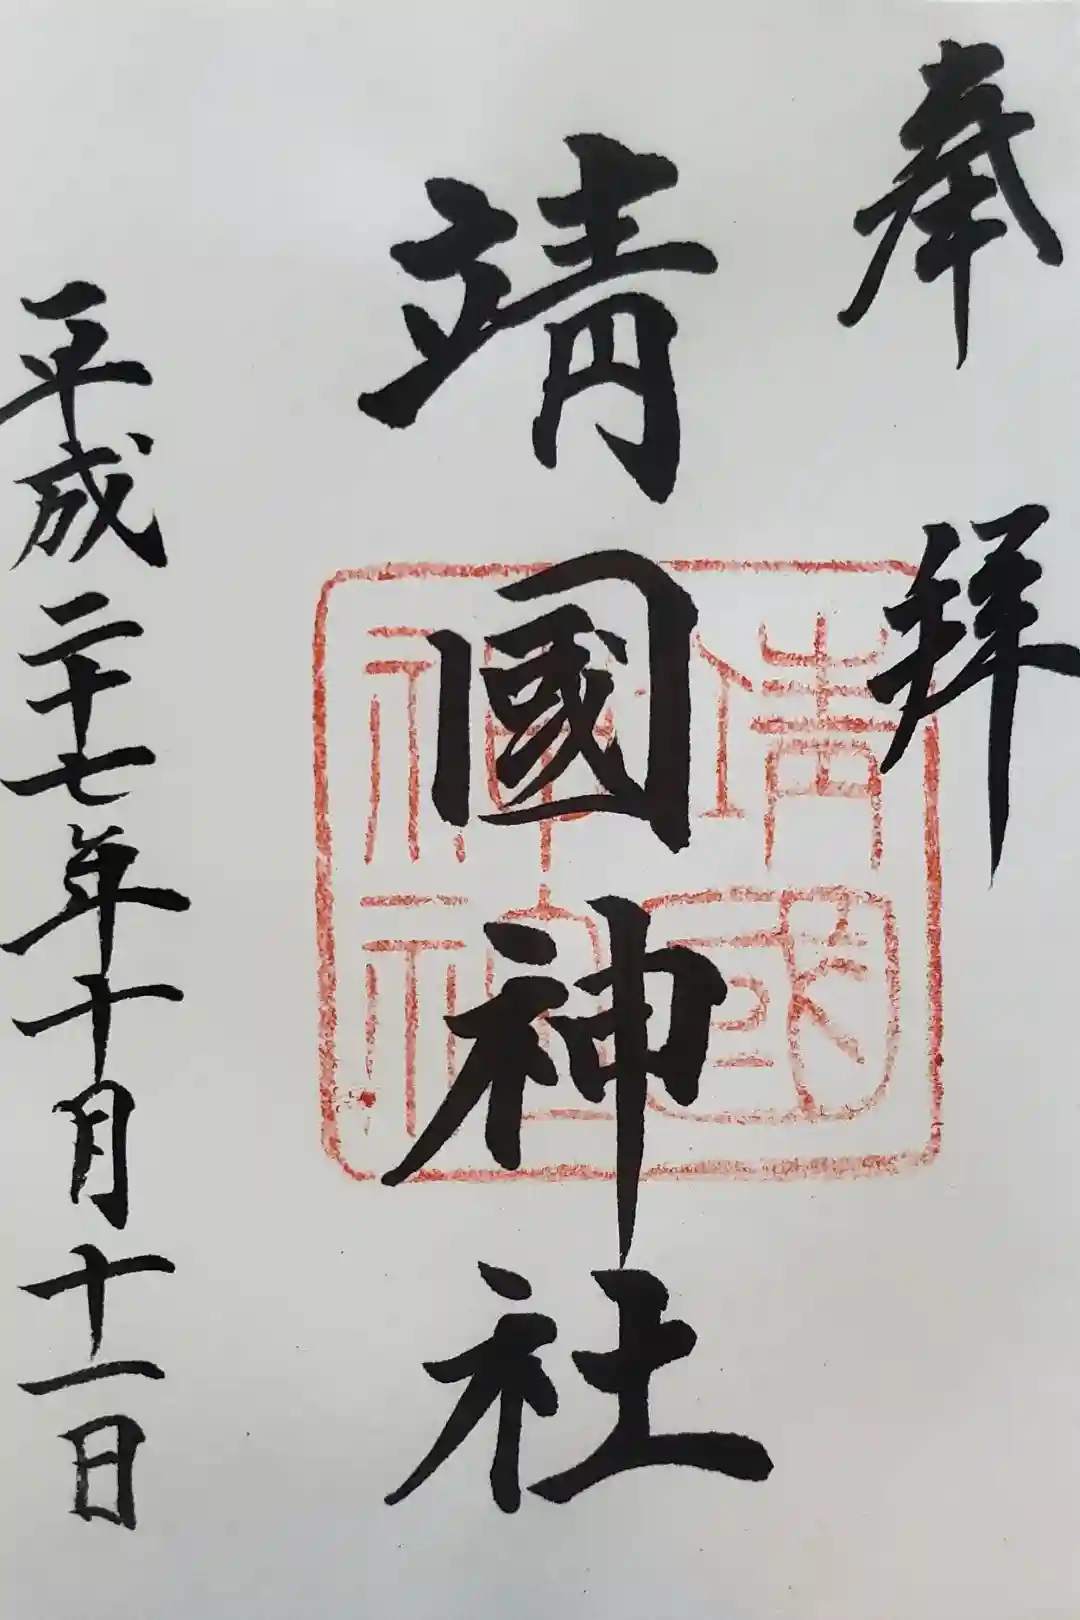 奉拜
靖國神社
靖國
神社
平成二十七年十月十一日